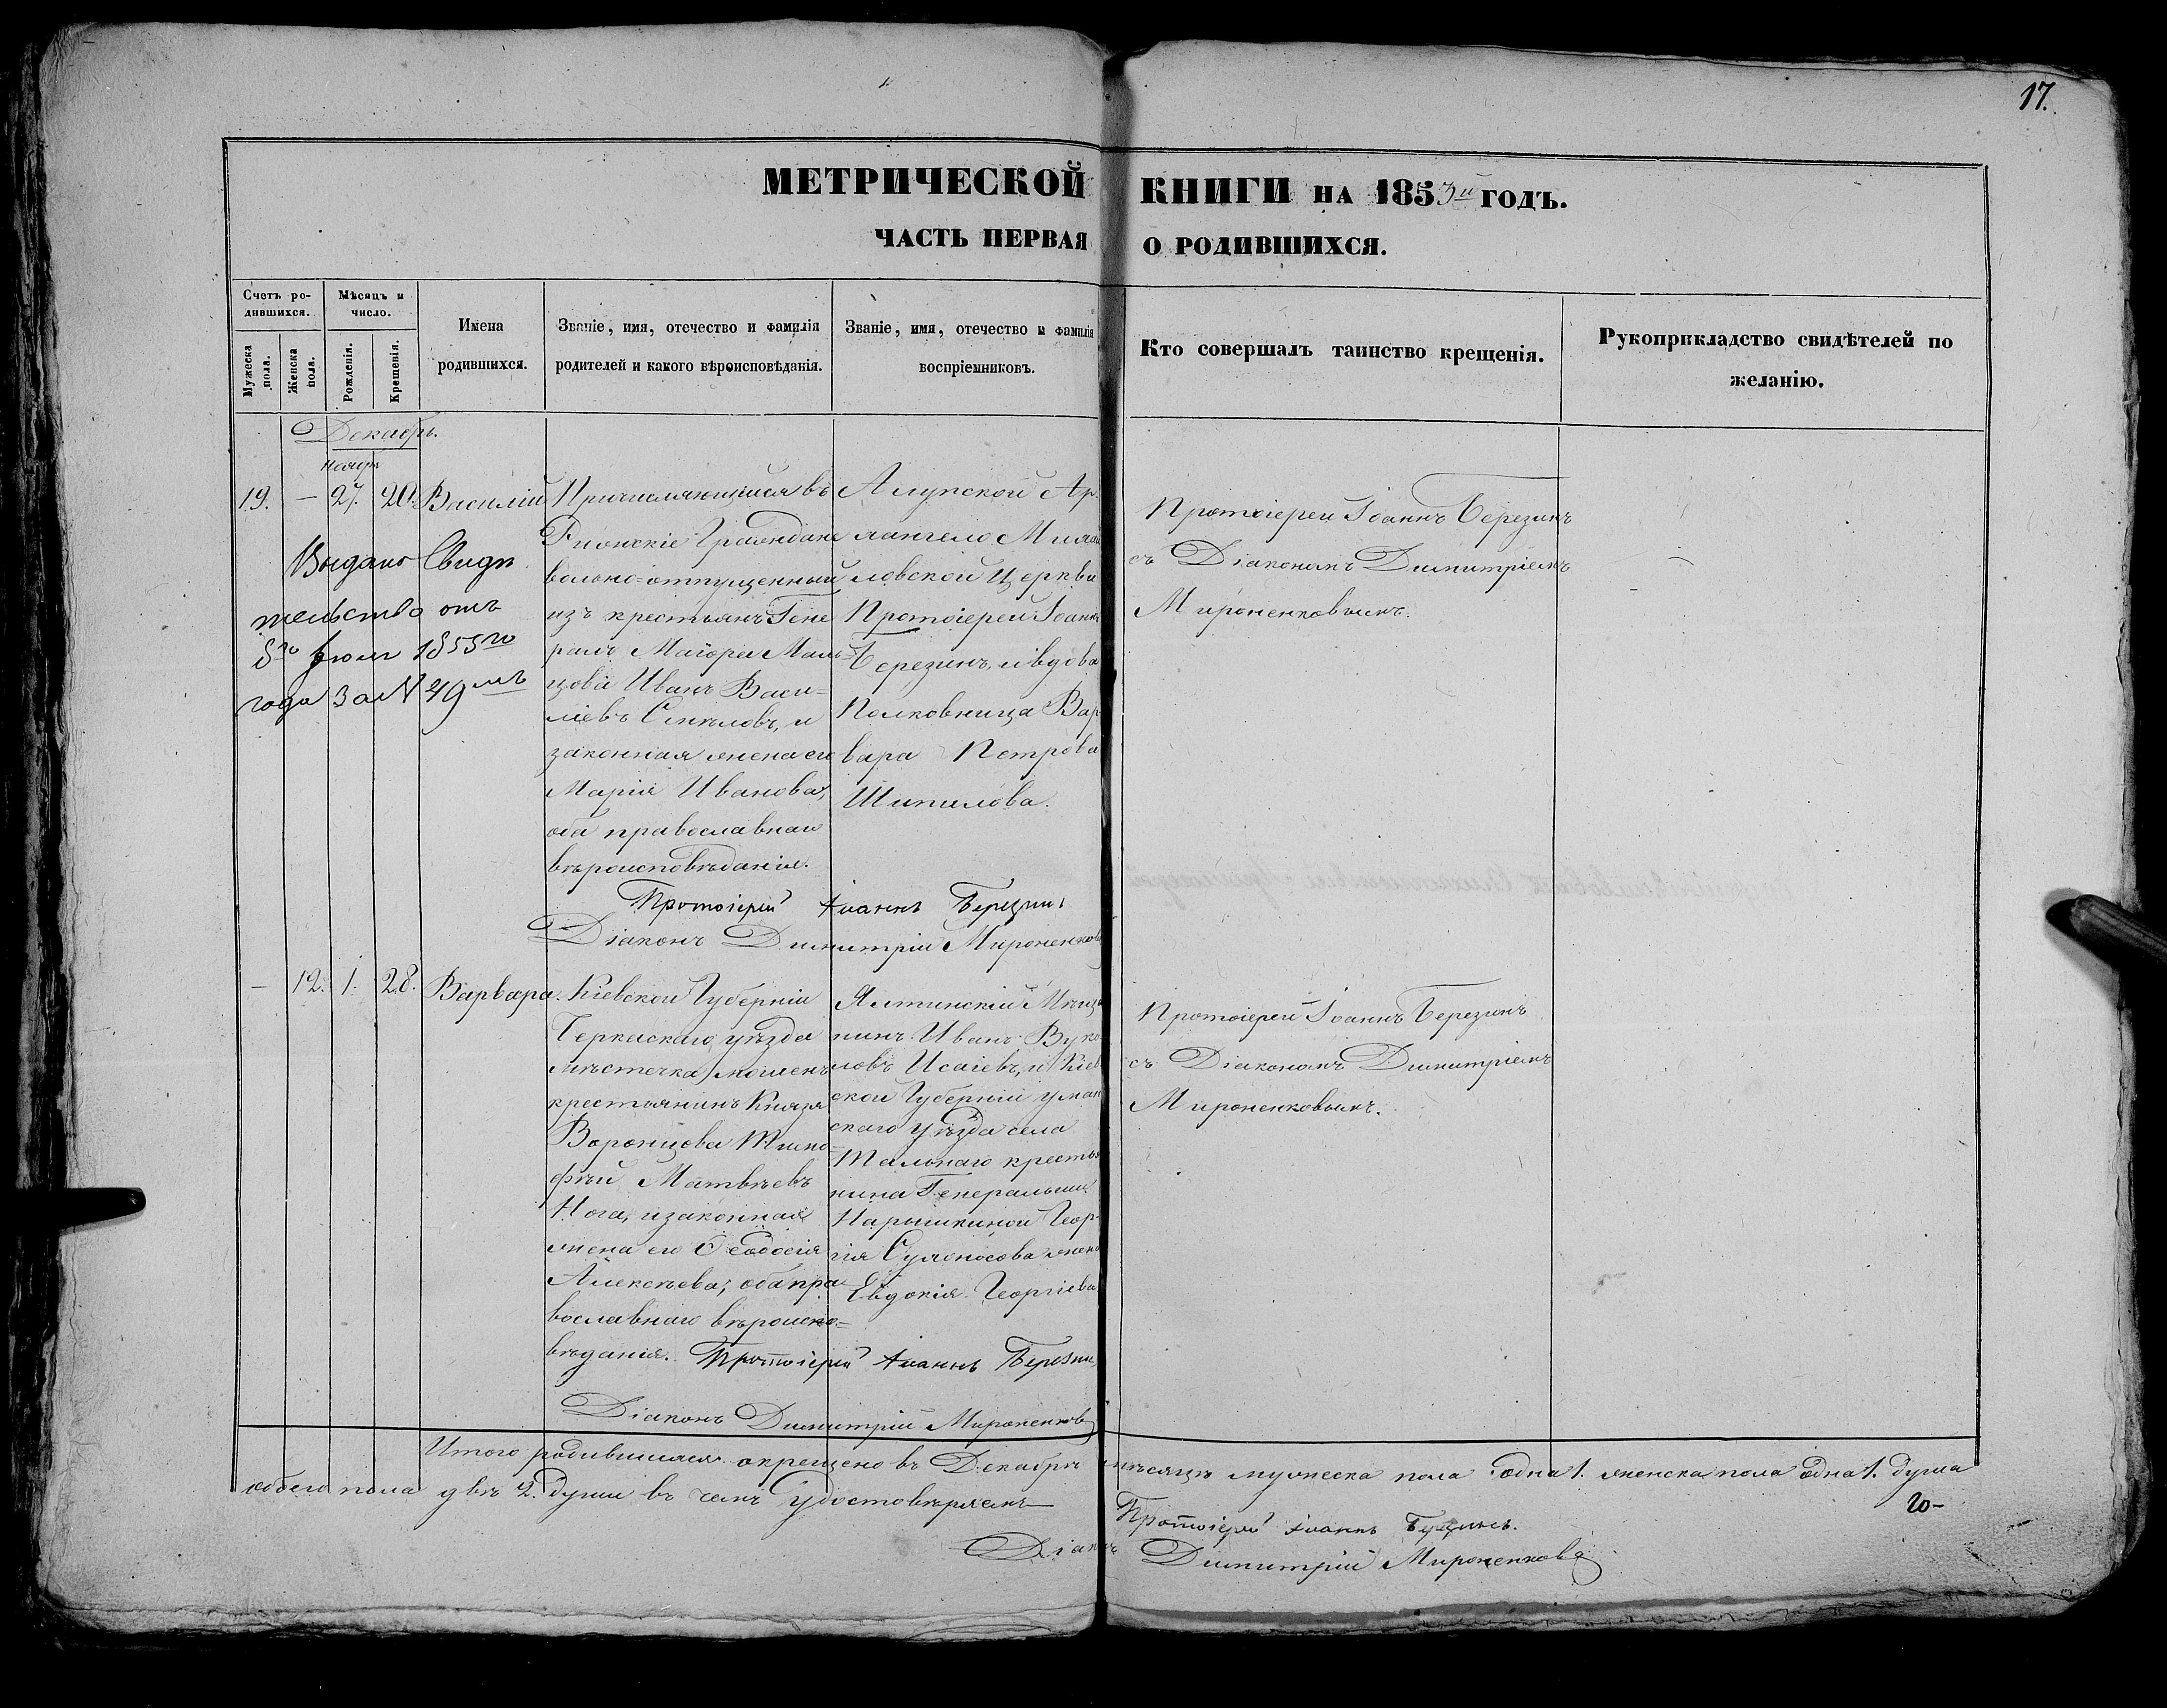 17.
МЕТРИЧЕСКОЙ КНИГИ НА 1853й ГОДЪ.
ЧАСТЬ ПЕРВАЯ О РОДИВШИХСЯ.
Счетъ родившихся.
Мужеска пола.
Женска пола.
Мѣсяцъ и число.
Рожденія.
Крещенія.
Имена
родившихся.
Званіе, имя, отечество и фамилія
родителей и какого вѣроисповѣданія.
Званіе, имя, отечество и фамилія
воспріемниковъ.
Кто совершалъ таинство крещенія.
Рукоприкладство свидѣтелей по
желанію.
Декабрь.
Ноябрь
19. — 27. 20. Василій
Выдано Свидѣ
тельство отъ
5го Іюля 1855го
года за № 49мъ
Причисляющійся въ
Граждане
вольно-отпущенный
изъ крестьянъ Гене
ралъ Маіора Маль
цова Иванъ Васи-
ліевъ и
законная жена его
Марія Иванова,
оба православнаго
вѣроисповѣданія.
Алупской Ар
хангело Михаи
ловской Церкви
Протоіерей Іоаннъ
Березинъ, и вдова
Полковница Вар
вара Петрова
Шипилова.
Протоіерей Іоаннъ Березинъ
съ Діакономъ Димитріемъ
Мироненковымъ.
Протоіерей Іоаннъ Березинъ
Діаконъ Димитрій Мироненковъ
— 12. 1. 28. Варвара.
Кіевской Губерніи
Черкаскаго уѣзда
мѣстечка Мошенъ
крестьянинъ Князя
Воронцова Тимо-
фѣй Матвѣевъ
Нога, и законная
жена его Ѳеодосія
Алексѣева, оба пра
вославнаго вѣроиспо-
вѣданія.
Ялтинскій Мѣща
нинъ Иванъ Вуко
ловъ Исаіевъ, и Кіев
ской Губерніи Уман
скаго уѣзда села
Тальнаго кресть
нина Генеральши
Нарышкиной Геор
гія Сухоносова жена
Евдокія Георгіева
Протоіерей Іоаннъ Березинъ
съ Діакономъ Димитріемъ
Мироненковымъ.
Протоіерей Іоаннъ Березинъ
Діаконъ Димитрій Мироненковъ
Итого родившихся окрещено въ Декабрѣ мѣсяцѣ мужеска пола одна 1. женска пола одна 1. душа
обоего пола двѣ 2. души въ чемъ удостовѣряемъ
20-
Протоіерей Іоаннъ Березинъ.
Діаконъ Димитрій Мироненковъ